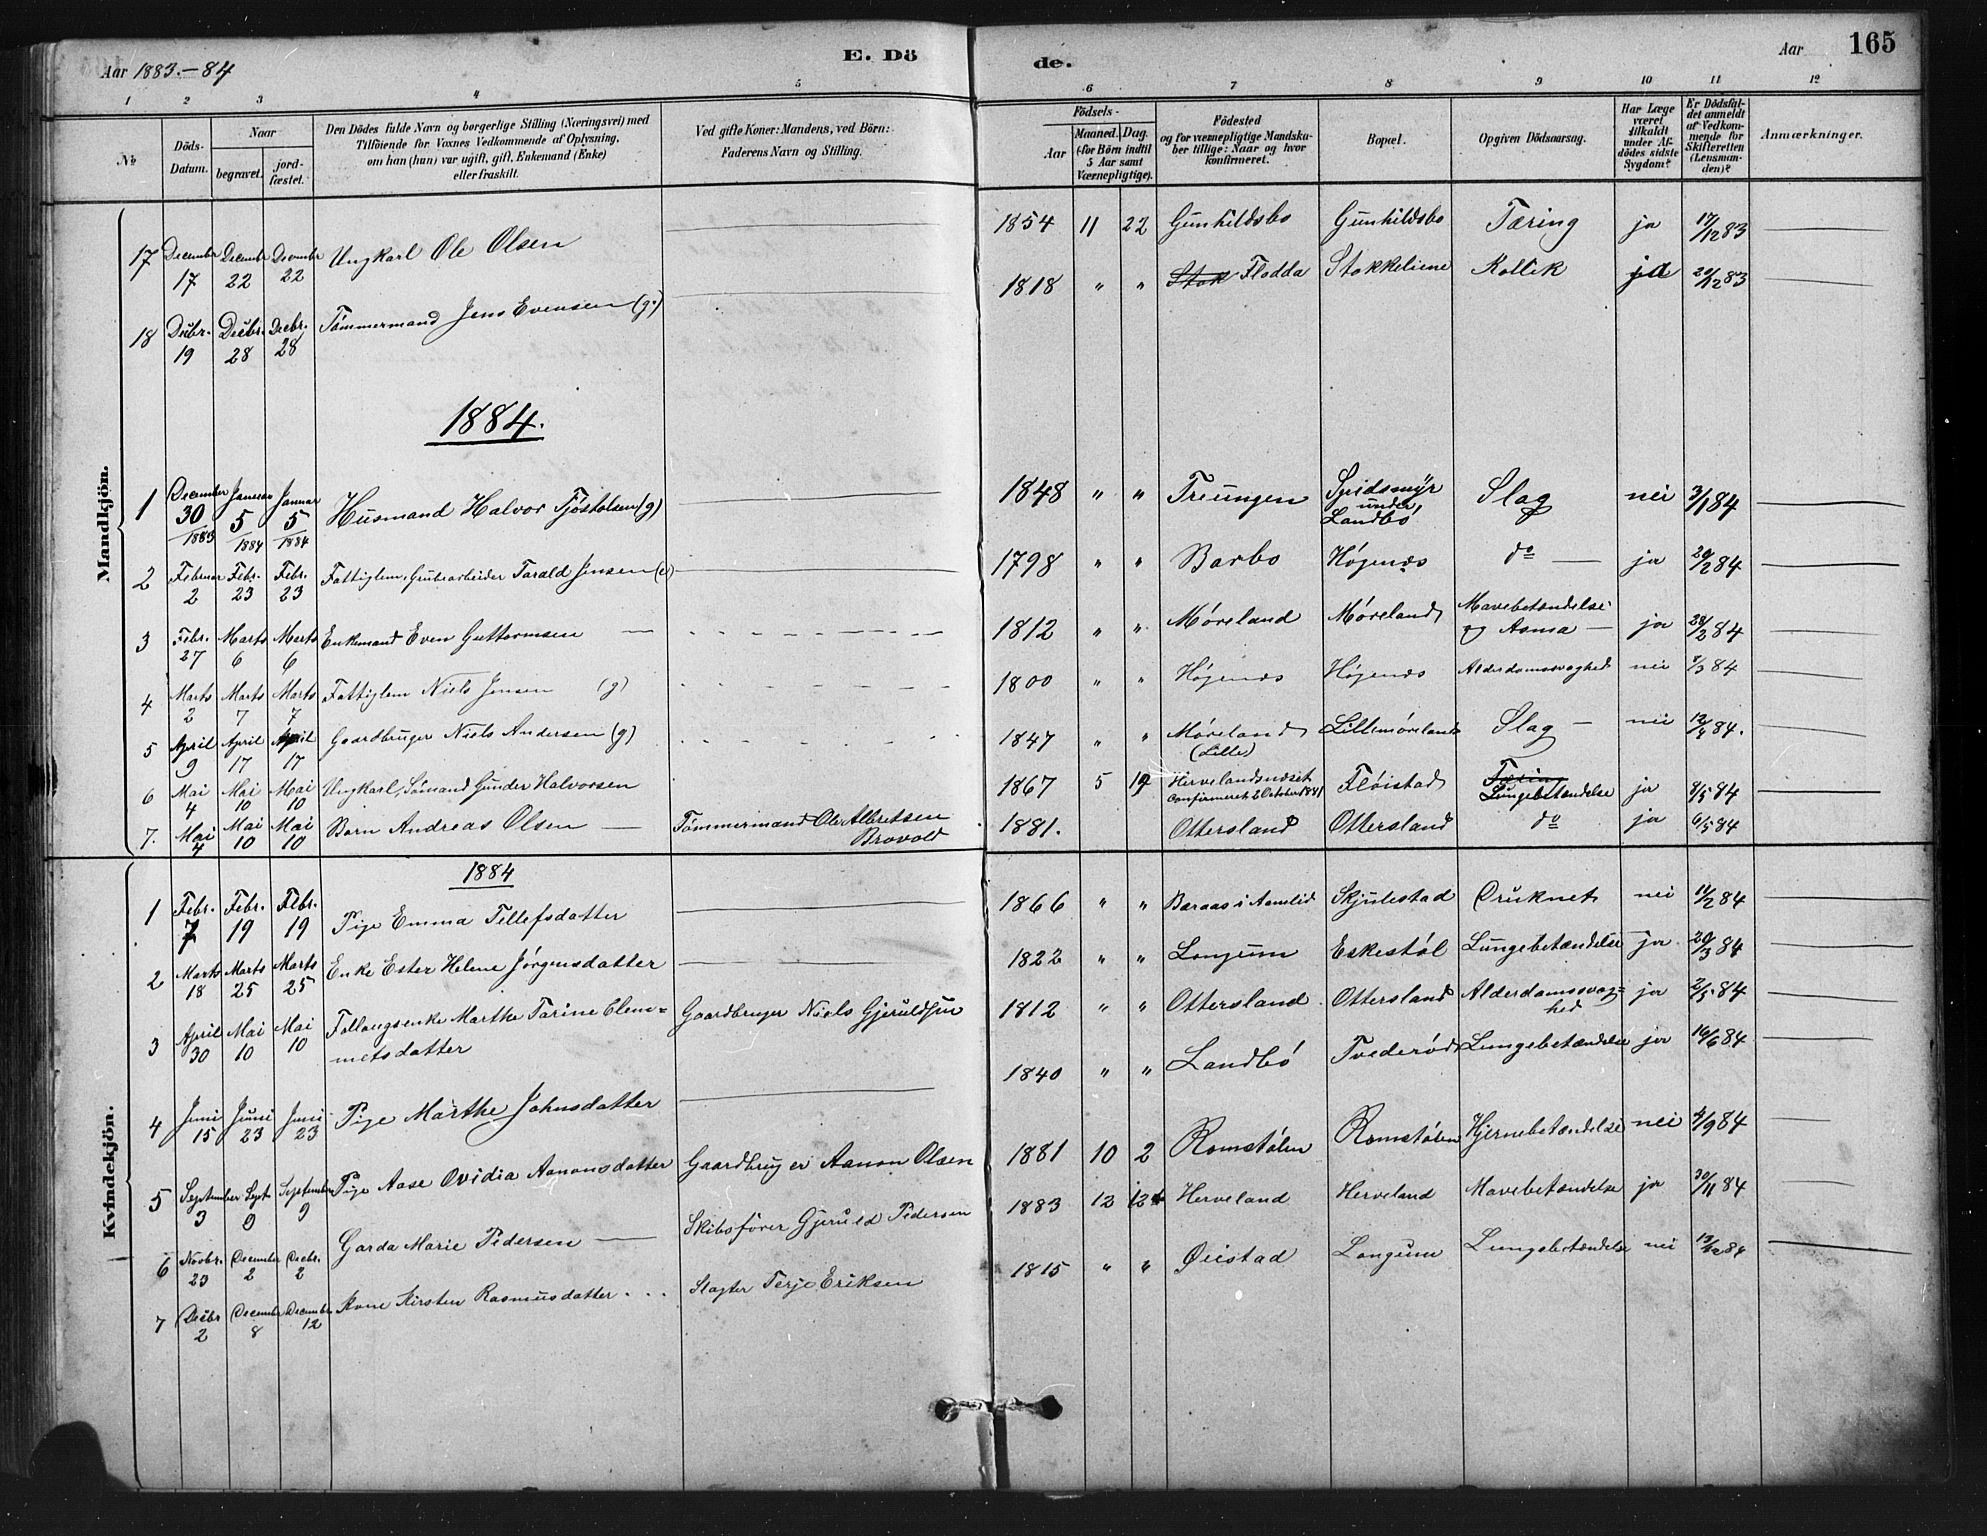 Aar 1883.-84
E. Dö
de.
Aar
165
1 2 3 4 5 6 7 8 9 10 11 12
№
Döds-Datum.
Naar
begravet.
jord-fæstet.
Den Dödes fulde Navn og borgerlige Stilling (Næringsvei) med
Tilföiende for Voxnes Vedkommende af Oplysning,
om han (hun) var ugift, gift, Enkemand (Enke)
eller fraskilt.
Ved gifte Koner: Mandens, ved Börn:
Faderens Navn og Stilling.
Födsels-
Aar
Maaned. Dag.
(for Börn indtil
5 Aar samt
Værnepligtige).
Födested
og for værnepligtige Mandska-
ber tillige: Naar og hvor
konfirmeret.
Bopæl.
Opgiven Dödsaarsag.
Har Læge
været
tilkaldt
under Af-
dödes sidste
Sygdom?
Er Dödsfal-
det anmeldt
af Vedkom-
mende for
Skifteretten
(Lensman-
den)?
Anmærkninger.
Mandkjön.
17 December 17 December 22 December 22 Ungkarl Ole Olsen 1854 11 22 Gunhildsbo Gunhildsbo Tæring ja 17/12 83
18 Decbr. 19 Decbr. 28 Decbr. 28 Tømmermand Jens Evensen (g.) 1818 " " Stok Flodda Stokkeliene Kollik ja 20/12 83
1884.
1 December 30/1883 Januar 5/1884 Januar 5/1884 Husmand Halvor Tjøstolsen (g) 1848 " " Treungen Spidsmyr under Landbø Slag nei 3/1 84
2 Februar 2 Febr. 23 Febr. 23 Fattiglem, Grubearbeider Tarald Jensen (e) 1798 " " Barbo Høgenes do ja 20/2 84
3 Febr. 27 Marts 6 Marts 6 Enkemand Even Guttormsen 1812 " " Møreland Møreland Mavebetændelse og Asma ja 28/2 84
4 Marts 2 Marts 7 Marts 7 Fattiglem Niels Jensen (g) 1800 " " Høgenes Høgenes Alderdomssvaghed nei 4/3 84
5 April 9 April 17 April 17 Gaardbruger Niels Andersen (g) 1847 " " Møreland (Lille) Lillemøreland Slag nei 12/4 84.
6 Mai 4 Mai 10 Mai 10 Ungkarl, Sømand Gunder Halvorsen 1867 5 19 Hervelandsneset Confirmeret 2 October 1881 Fløistad Tæring Lungebetændelse ja 8/5 84
7. Mai 4 Mai 10 Mai 10 Barn Andreas Olsen Tømmermand Ole Albretsen Brovold 1881. Ottersland Ottersland do ja 6/5 84
Kvindekjön.
1884
1 Febr. 7 Febr. 19 Febr. 19 Pige Emma Tellefsdatter 1866 " " Baraas i Aamlid Skjulestad Druknet nei 11/2 84
2 Marts 18 Marts 25 Marts 25 Enke Ester Helene Jørgensdatter 1822 " " Longum Eskestøl Lungebetændelse ja 20/3 84
3 April 30 Mai 10 Mai 10 Follaugsenke Marthe Tarine Clem=
metsdatter Gaardbruger Niels Gjeruldsen 1812 " " Ottersland Ottersland Alderdomssvag=
hed ja 2/5 84
4 Juni 15 Juni 23 Juni 23 Pige Marthe Johnsdatter 1840 " " Landbö Tvederød Lungebetændelse ja 16/6 84
5 September 3 Sept 9 September 9 Pige Aase Ovidia Aanonsdatter Gaardbruger Aanon Olsen 1881 10 2 Romstølen Romstølen Hjernebetændelse nei 4/9 84
6 Novbr. 23 December 2 Decbr. 2 Garda Marie Pedersen Skibsfører Gjeruld Pedersen 1883 12 12 Herveland Herveland Mavebetændelse ja 30/11 84
7 Decbr 2 December 8 December 12 Kone Kirsten Rasmusdatter Slagter Terje Eriksen 1815 " " Øiestad Longum Lungebetændelse nei 12/12 84